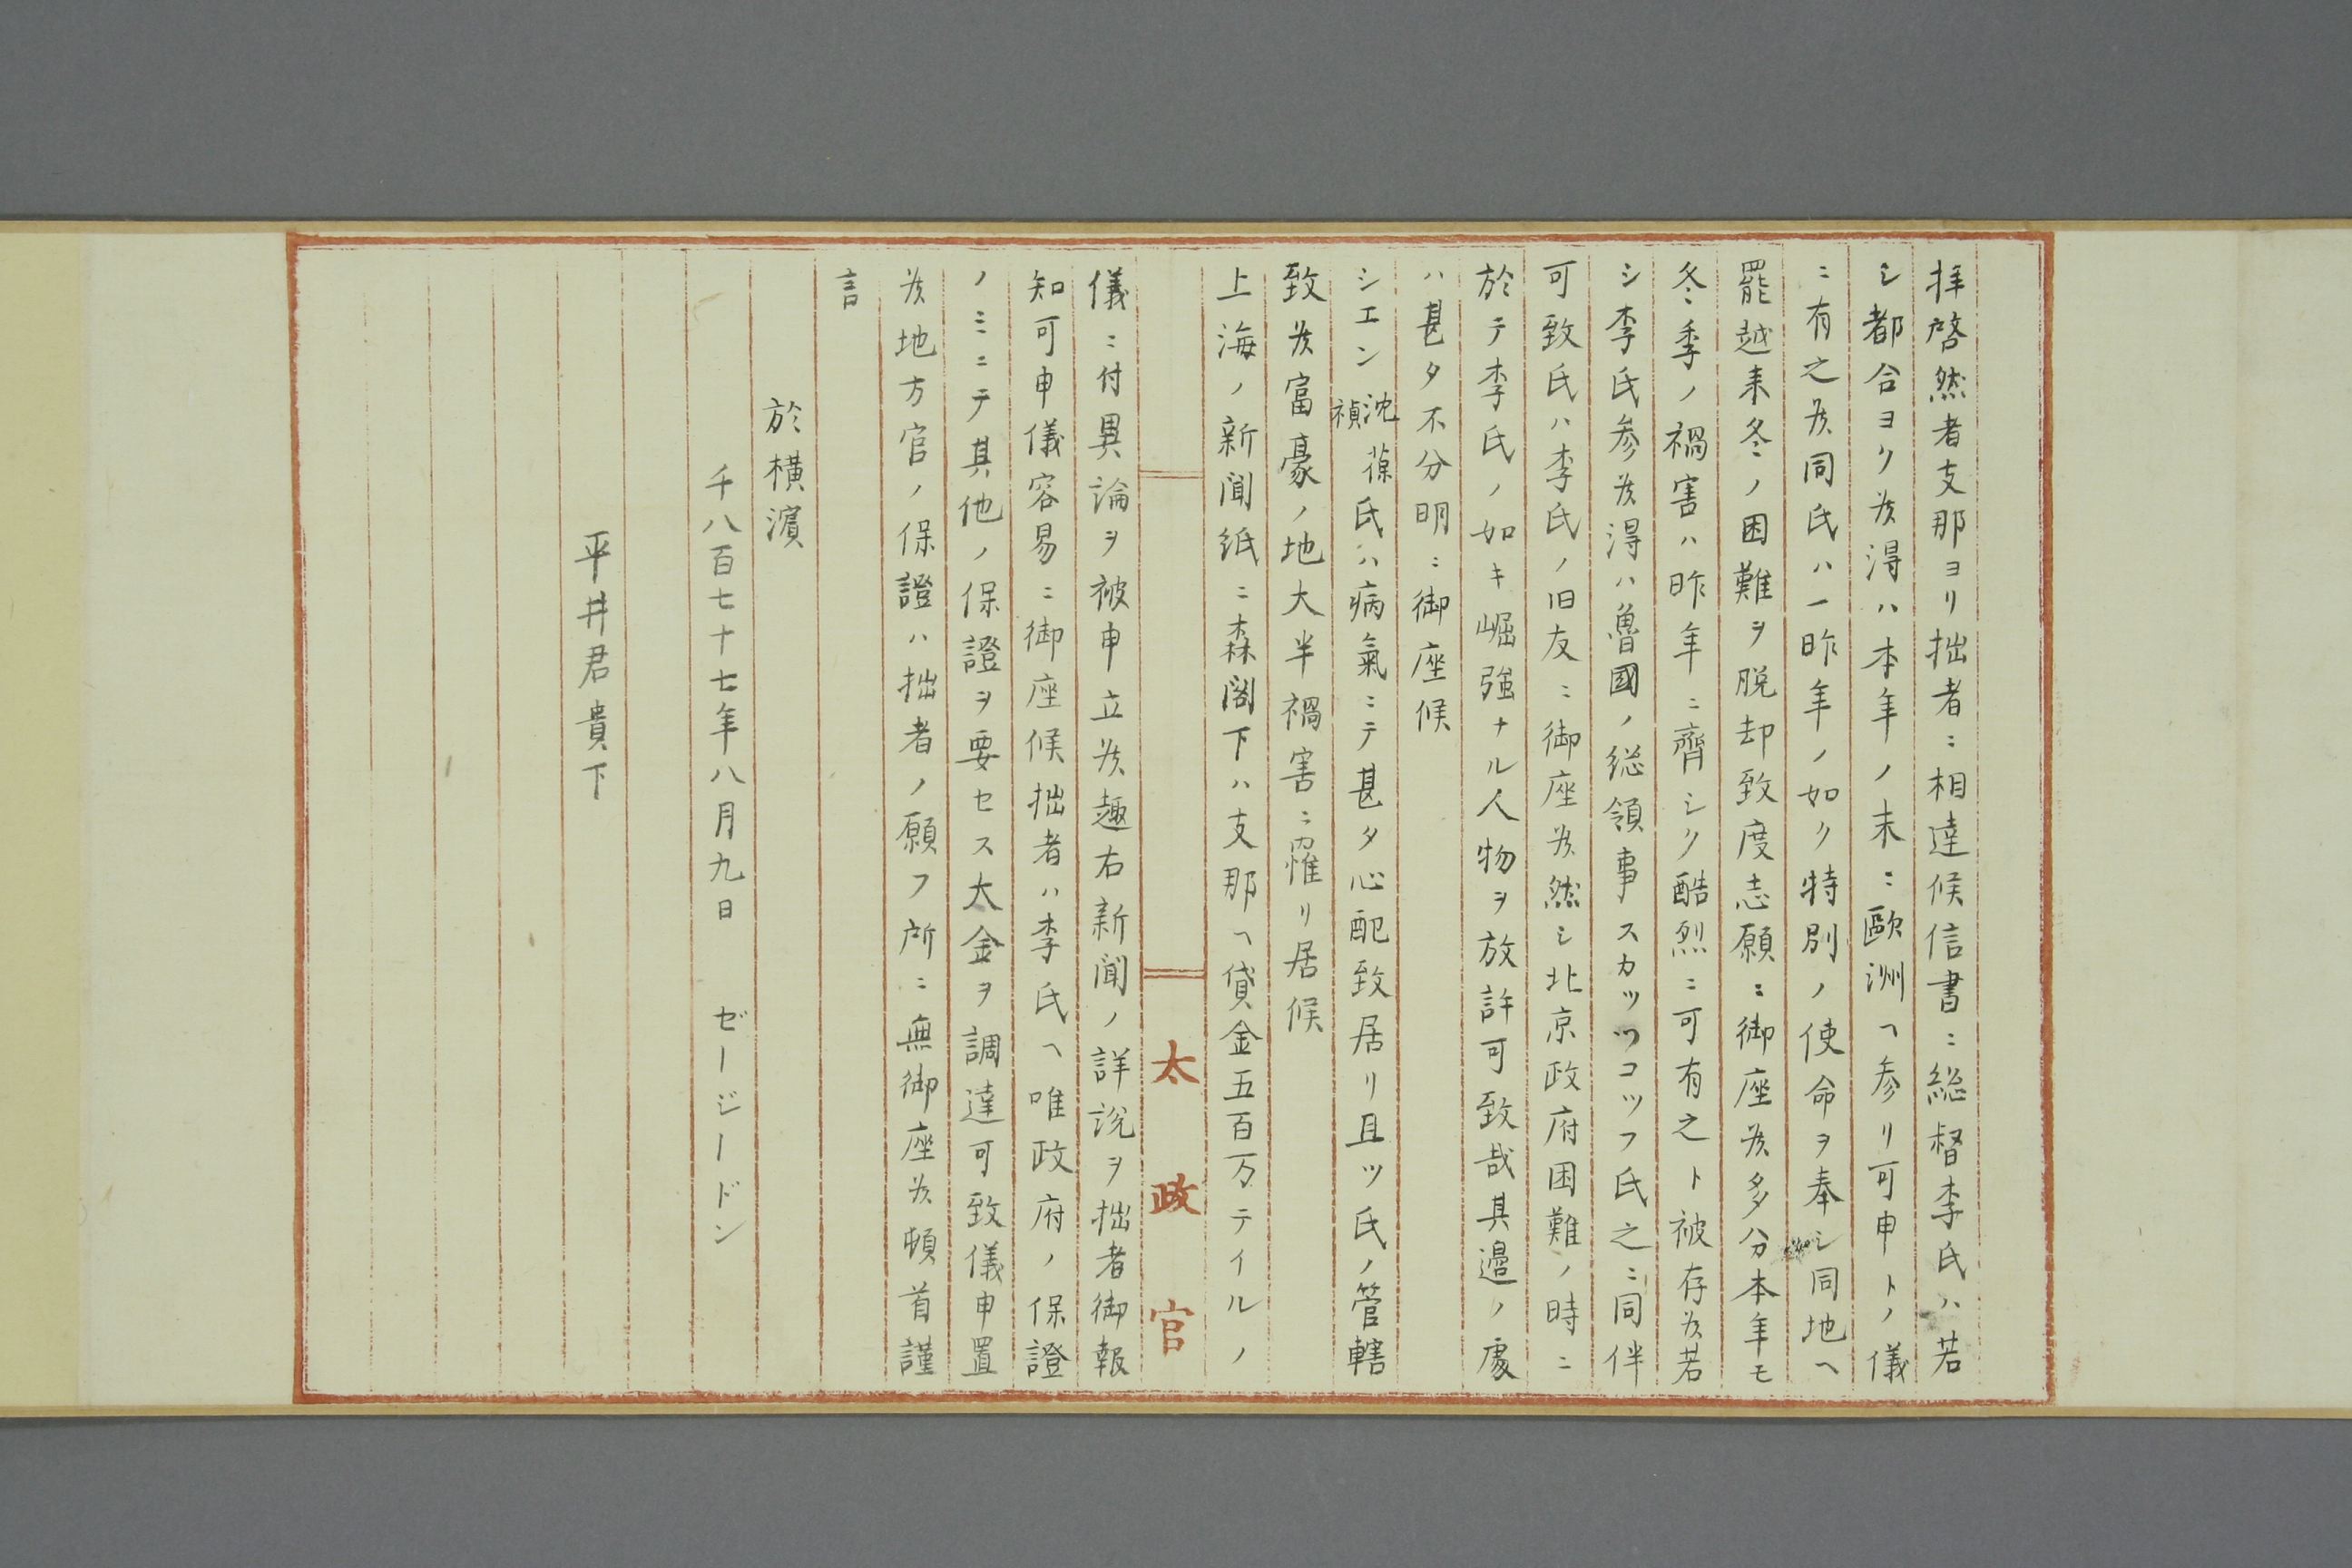 拝啓然者支那ヨリ拙者ニ相達候信書ニ総督李氏ハ若
シ都合ヨク候得ハ本年ノ末ニ歐洲ヘ参リ可申トノ儀
ニ有之候同氏ハ一昨年ノ如ク特別ノ使命ヲ奉シ同地ヘ
罷越来冬ノ困難ヲ脱却致度志願ニ御座候多分本年モ
冬季ノ禍害ハ昨年ニ齊シク酷烈ニ可有之ト被存候若
シ李氏参候得ハ魯國ノ総領事スカツツコツフ氏之ニ同伴
可致氏ハ李氏ノ旧友ニ御座候然シ北京政府困難ノ時ニ
於テ李氏ノ如キ崛強ナル人物ヲ放許可致哉其邉ノ處
ハ甚タ不分明ニ御座候
シエン沈葆禎氏ハ病氣ニテ甚タ心配致居リ且ツ氏ノ管轄
致候富豪ノ地大半禍害ニ罹リ居候
上海ノ新聞紙ニ森閣下ハ支那ヘ貸金五百万テイルノ
太政官
儀ニ付異論ヲ被申立候趣右新聞ノ詳説ヲ拙者御報
知可申儀容易ニ御座候拙者ハ李氏ヘ唯政府ノ保證
ノミニテ其他ノ保證ヲ要セス大金ヲ調達可致儀申置
候地方官ノ保證ハ拙者ノ願フ所ニ無御座候頓首謹
言
於横濱
千八百七十七年八月九日 ゼージードン
平井君貴下